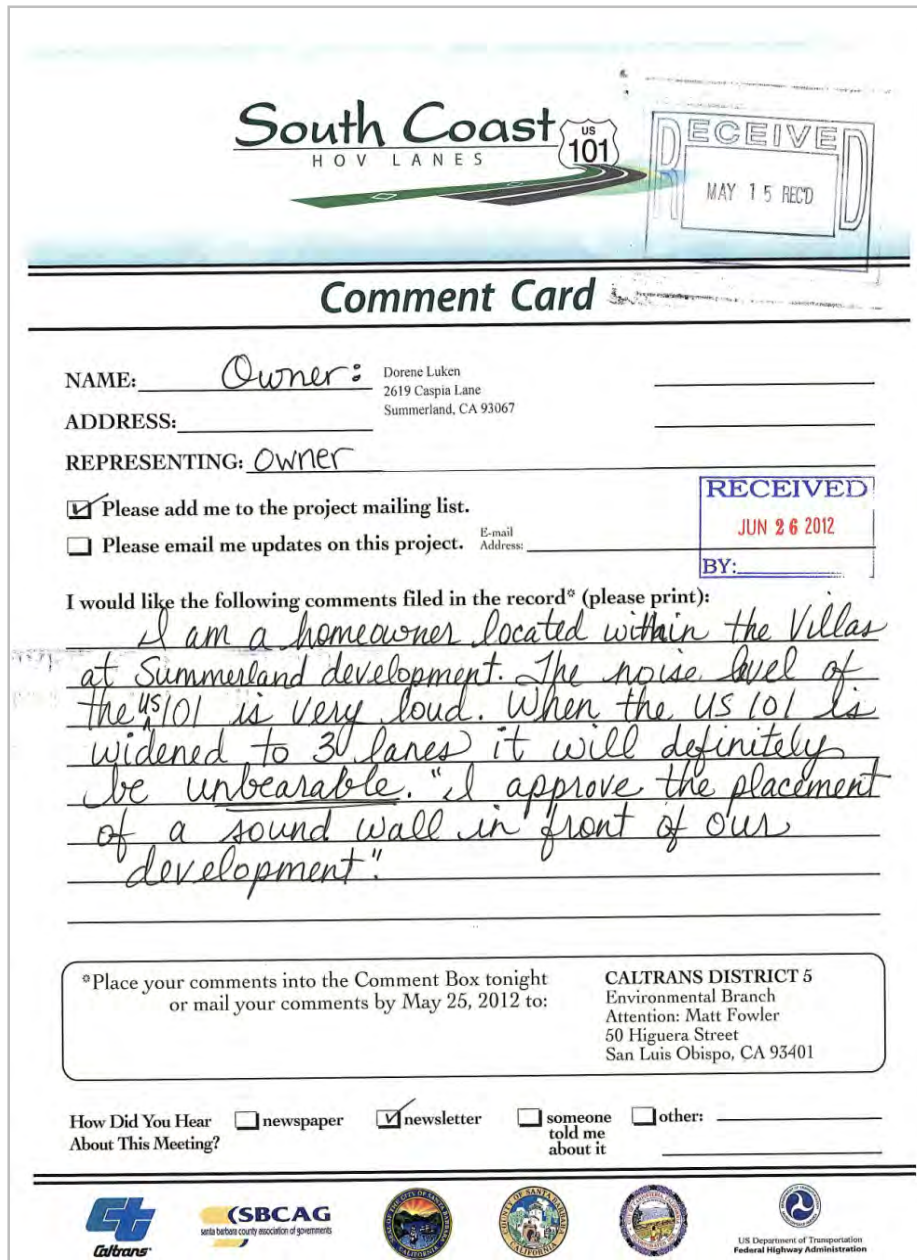 South Coast
HOV LANES
US
101
RECEIVED
MAY 15 REC'D
Comment Card
NAME: Owner: Dorene Luken
2619 Caspia Lane
ADDRESS: Summerland, CA 93067
REPRESENTING: Owner
RECEIVED
JUN 26 2012
BY:
Please add me to the project mailing list.
Please email me updates on this project. E-mail Address:
I would like the following comments filed in the record* (please print):
I am a homeowner located within the Villas
at Summerland development. The noise level of
the US 101 is very loud. When the US 101 is
widened to 3 lanes it will definitely
be unbearable. "I approve the placement
of a sound wall in front of our
development".
*Place your comments into the Comment Box tonight
or mail your comments by May 25, 2012 to:
CALTRANS DISTRICT 5
Environmental Branch
Attention: Matt Fowler
50 Higuera Street
San Luis Obispo, CA 93401
How Did You Hear
About This Meeting?
newspaper
newsletter
someone
told me
about it
other:
Caltrans
SBCAG
santa barbara county association of governments
US Department of Transportation
Federal Highway Administration